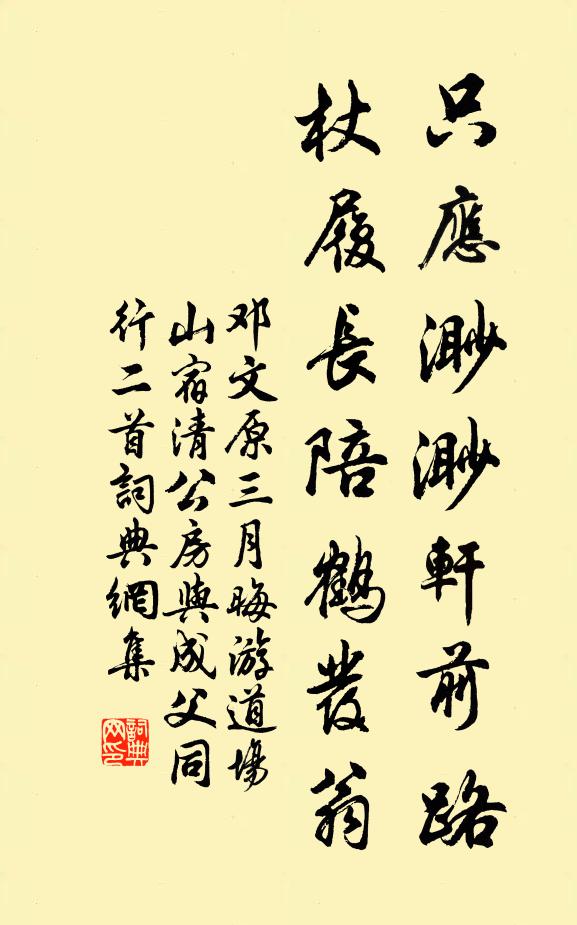 只應渺渺軒前路
杖屨長陪鶴發翁
邓文原三月晦游道場
山宿清公房與成父同
行二首詞典網集
詞典網印